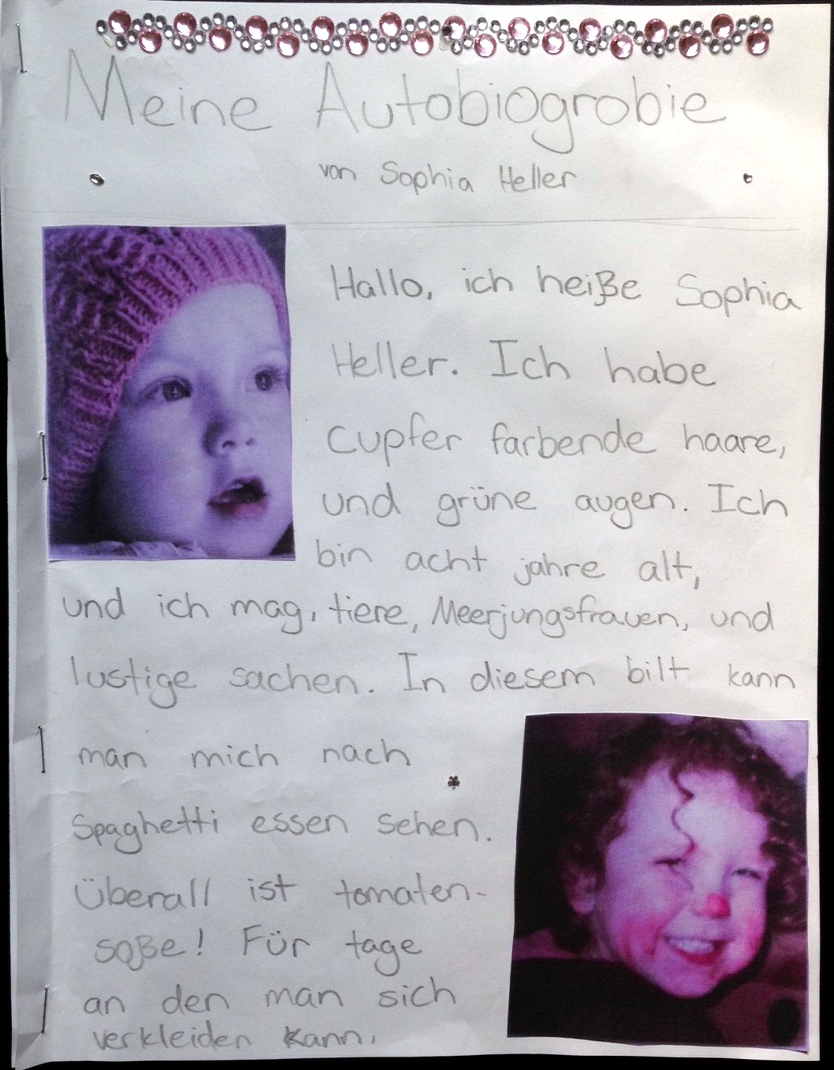 Meine Autobiogrobie
von Sophia Heller
Hallo, ich heiße Sophia
Heller. Ich habe
cupfer farbende haare,
und grüne augen. Ich
bin acht jahre alt,
und ich mag, tiere, Meerjungsfrauen, und
lustige sachen. In diesem bilt kann
man mich nach
Spaghetti essen sehen.
Überall ist tomaten-
soße! Für tage
an den man sich
verkleiden kann,